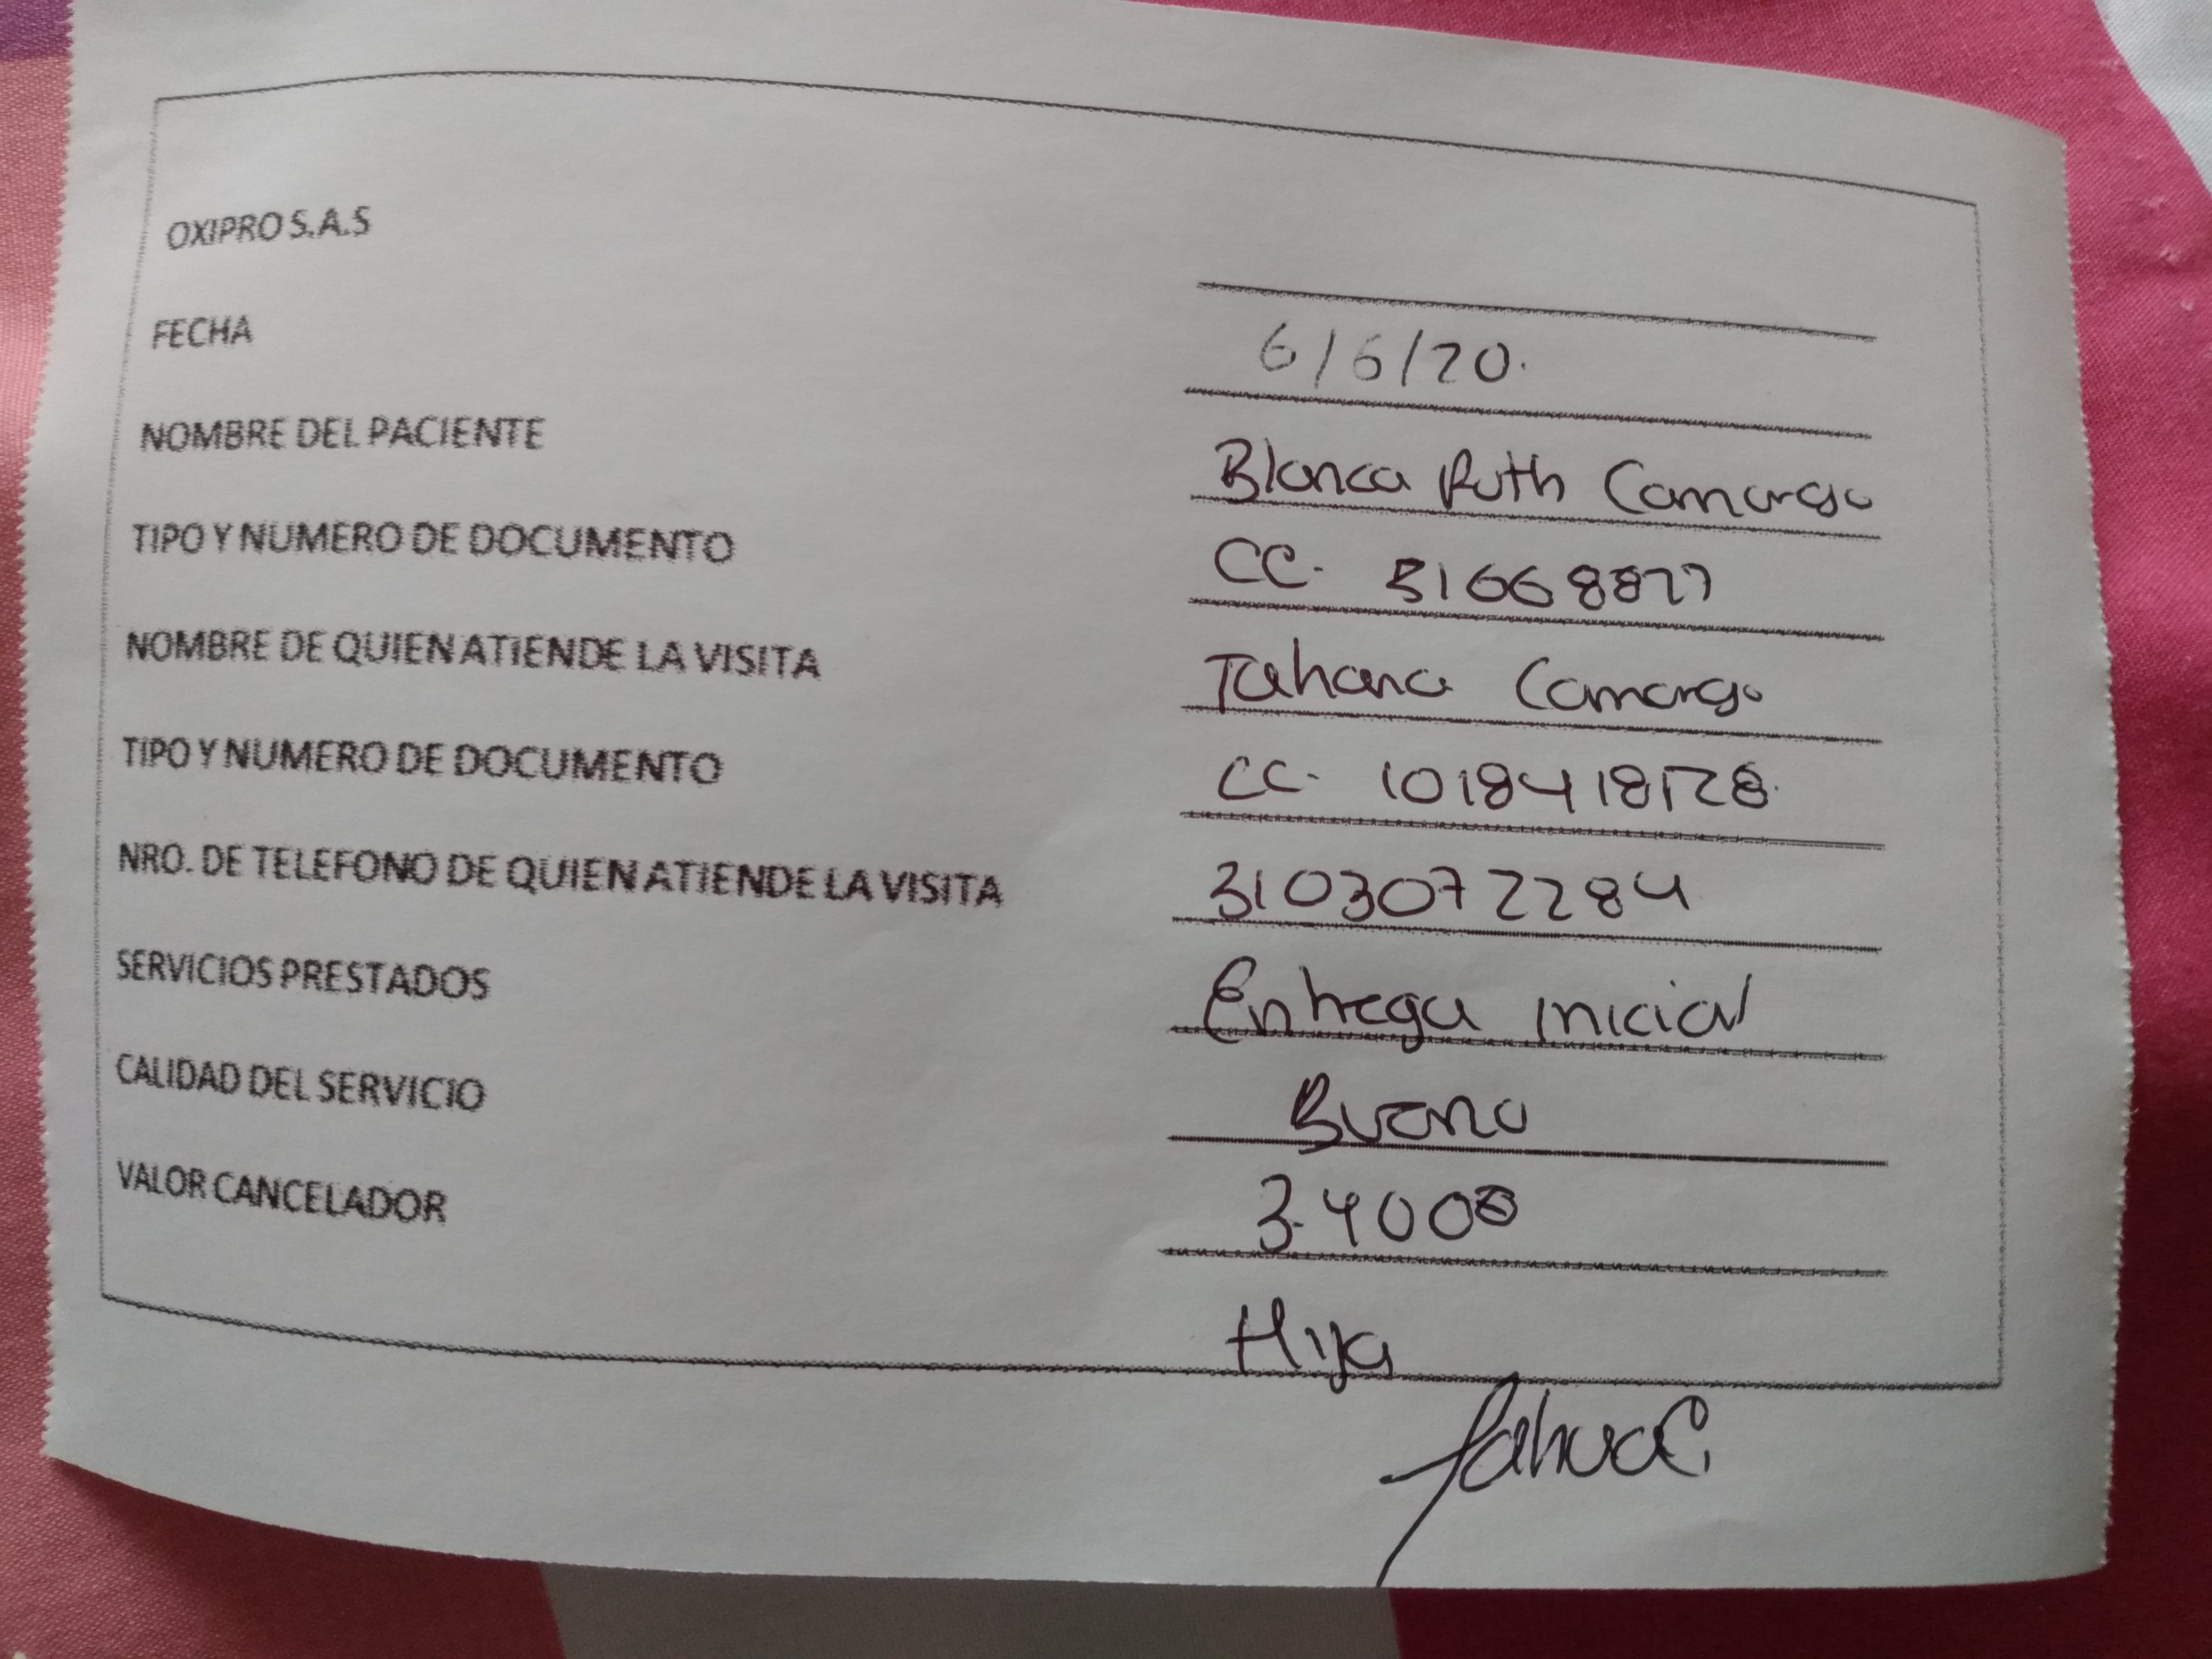 OXIPRO S.A.S
FECHA 6/6/20.
NOMBRE DEL PACIENTE Blanca Ruth Camargo
TIPO Y NUMERO DE DOCUMENTO CC. 51668877
NOMBRE DE QUIEN ATIENDE LA VISITA Tatiana Camargo
TIPO Y NUMERO DE DOCUMENTO CC.
NRO. DE TELEFONO DE QUIEN ATIENDE LA VISITA 3103072284
SERVICIOS PRESTADOS Entrega inicial
CALIDAD DEL SERVICIO Bueno
VALOR CANCELADOR 3.400
Hija